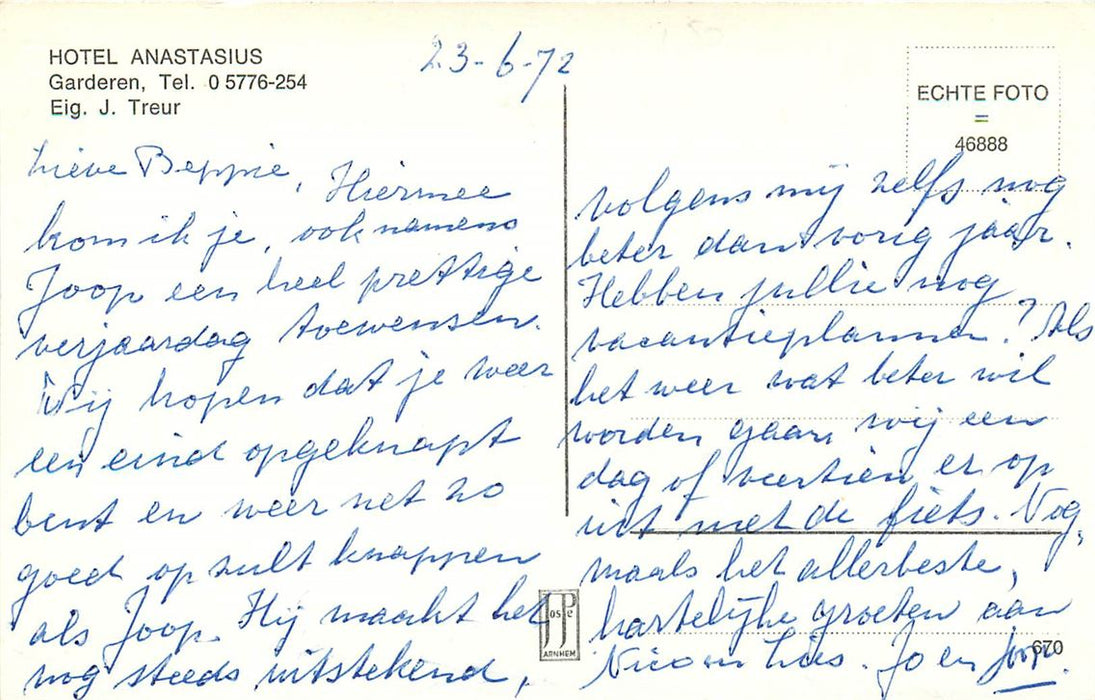 HOTEL ANASTASIUS
Garderen, Tel. 0 5776-254
Eig. J. Treur
23-6-72
ECHTE FOTO
=
46888
Lieve Beppie, Hiermee
kom ik je, ook namens
Joop een heel prettige
verjaardag toewensen.
Wij hopen dat je weer
een eind opgeknapt
bent en weer net zo
goed op zult knappen
als Joop. Hij maakt het
nog steeds uitstekend,
volgens mij zelfs nog
beter dan vorig jaar.
Hebben jullie nog
vacantieplannen? Als
het weer wat beter wil
worden gaan wij een
dag of veertien er op
uit met de fiets. Nog-
maals het allerbeste,
hartelijke groeten aan
Nico en Lies. Jo en Joop.
JosPe
ARNHEM
670